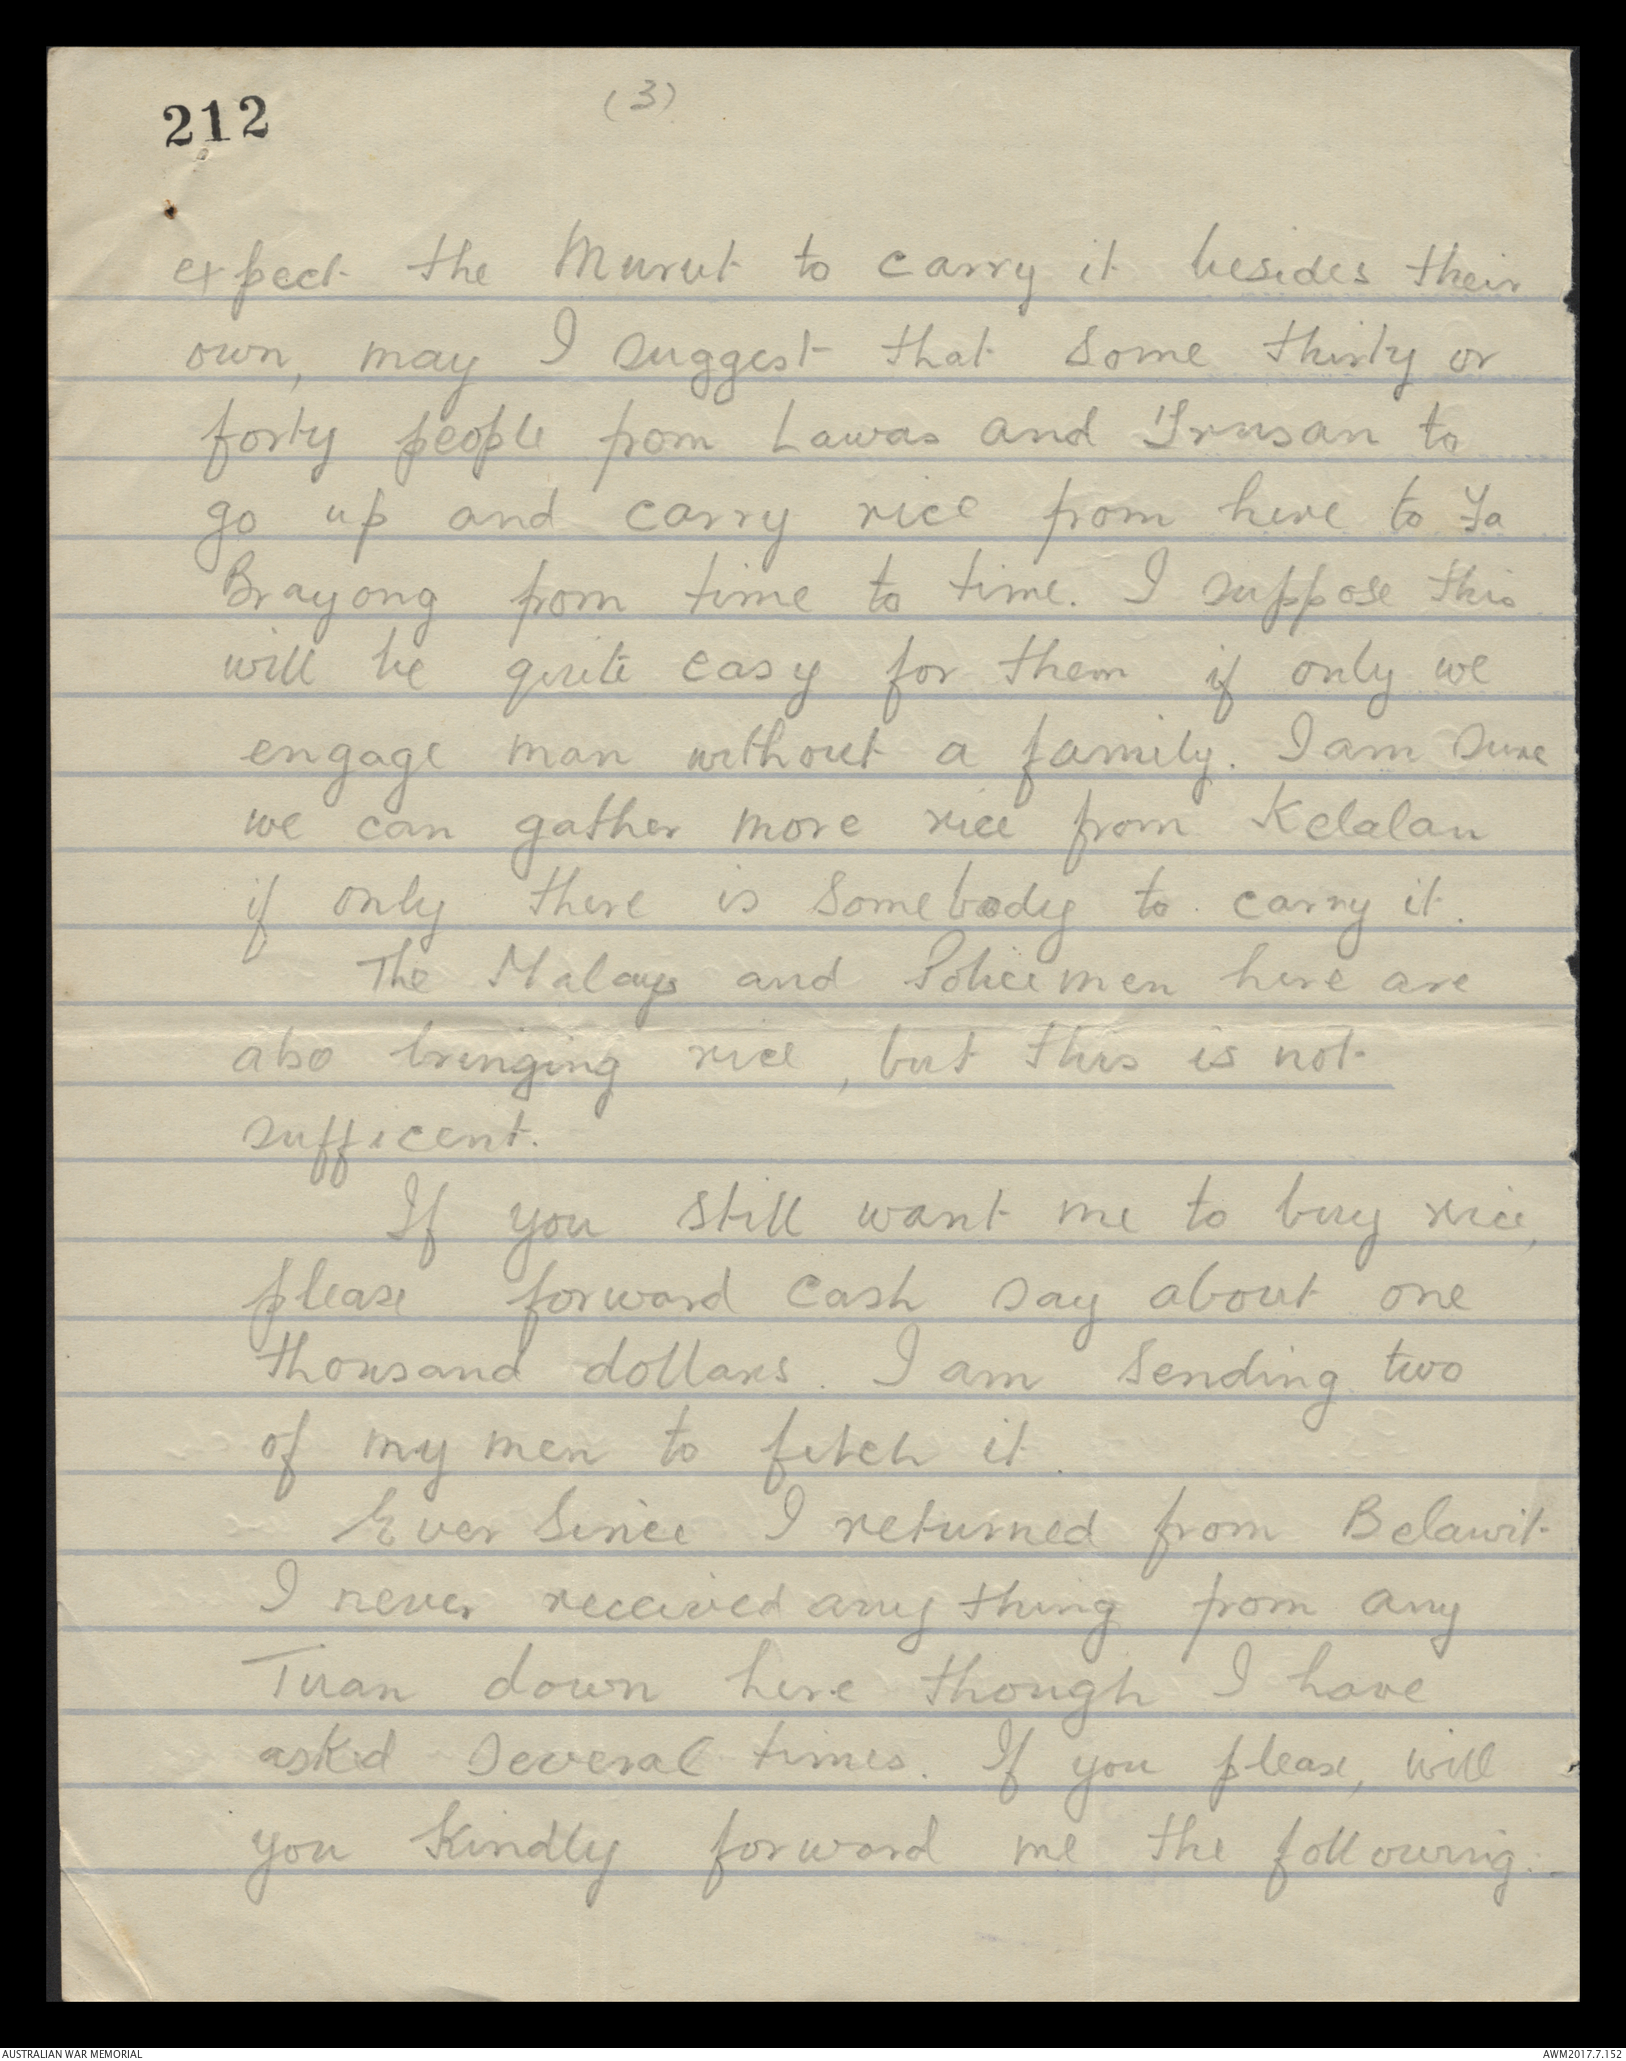 212
(3)
expect the Murut to carry it besides their
own, may I suggest that some thirty or
forty people from Lawas and Trusan to
go up and carry rice from here to Ta
Brayong from time to time. I suppose this
will be quite easy for them if only we
engage man without a family. I am sure
we can gather more rice from Kelalan
if only there is somebody to carry it.
The Malays and Policemen here are
also bringing rice, but this is not
sufficent.
If you still want me to buy rice,
please forward cash say about one
thousand dollars. I am sending two
of my men to fetch it.
Ever since I returned from Belawit
I never received any thing from any
Tuan down here though I have
asked several times. If you please, will
you kindly forward me the following:-
AUSTRALIAN WAR MEMORIAL
AWM2017.7.152